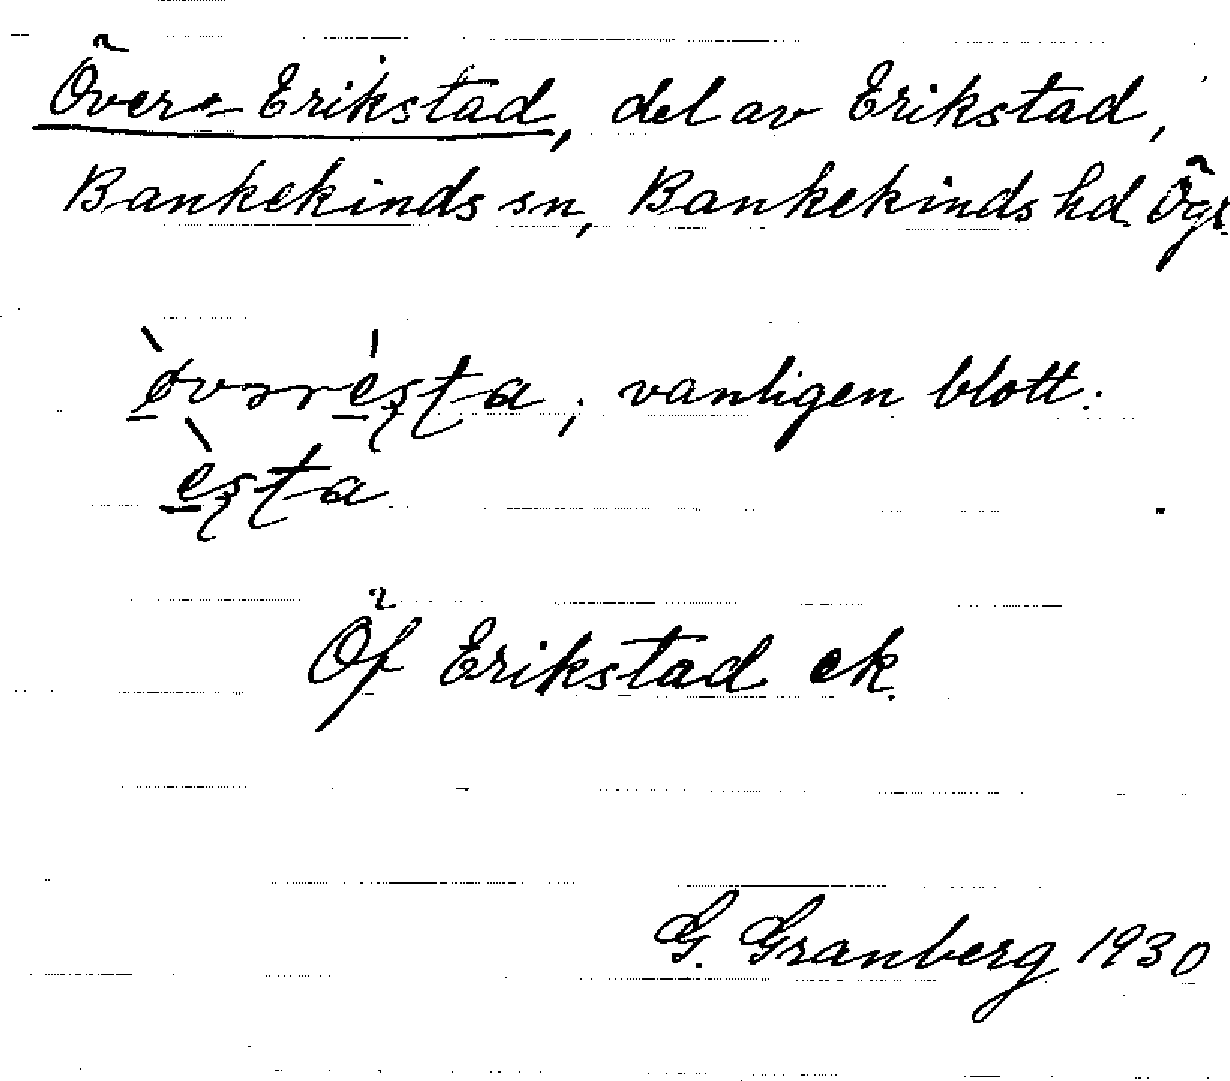 Övere Erikstad, del av Erikstad,
Bankekinds sn, Bankekinds hd Ögl.
vanligen blott:
Öf Erikstad ek.
G. Granberg 1930